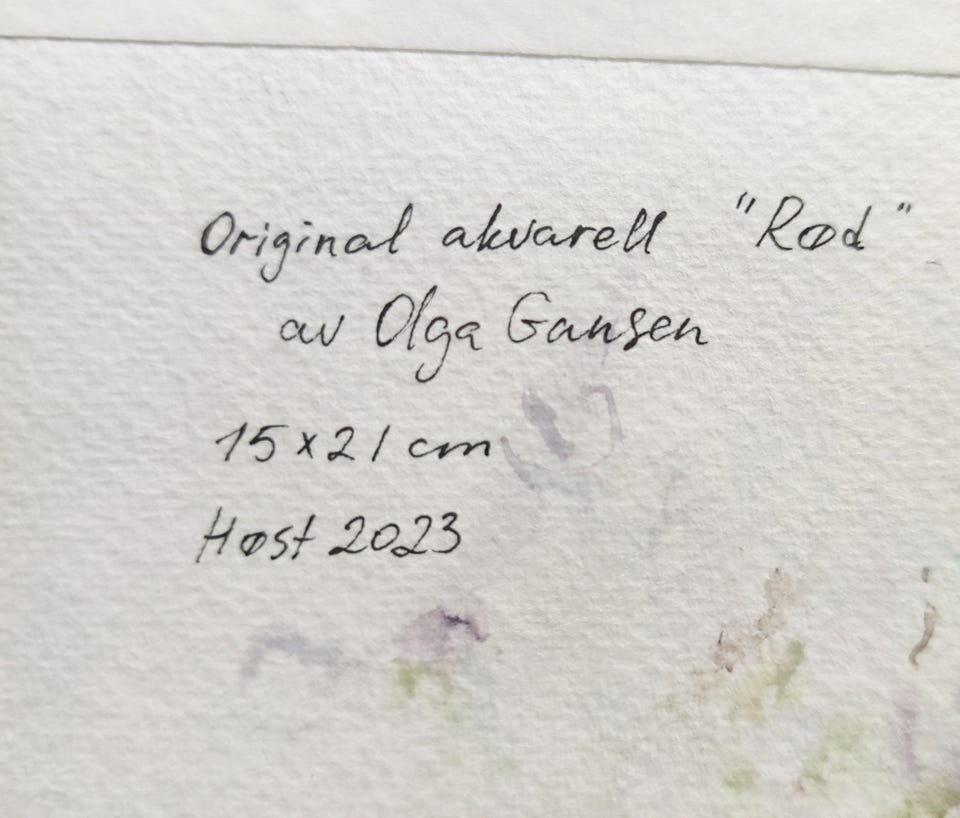 Original akvarell "Rød"
av Olga Gansen
15 x 21 cm
Høst 2023